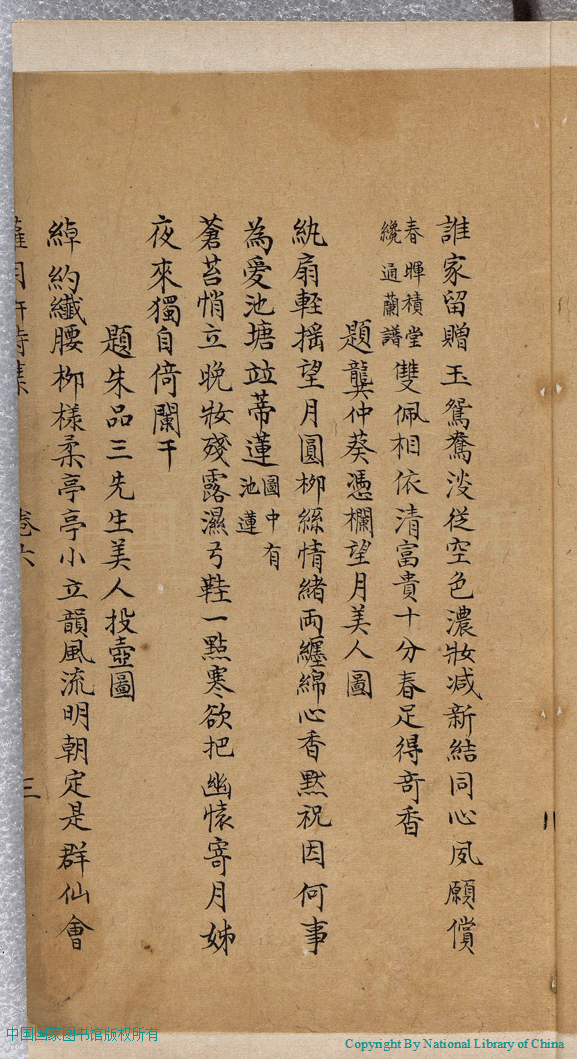 誰家留贈玉鴛鴦淡從空色濃妝减新結同心夙願償
春暉積堂
纔通蘭譜
雙佩相依清富貴十分春足得奇香
題龔仲葵憑欄望月美人圖
紈扇輕摇望月圓柳絲情緒兩纏綿心香黙祝因何事
為愛池塘竝蒂蓮
圖中有
池蓮
蒼苔悄立晚妝殘露濕弓鞋一點寒欲把幽懷寄月姊
夜來獨自倚闌干
題朱品三先生美人投壺圖
綽約纖腰柳樣柔亭亭小立韻風流明朝定是群仙會
卷六
三
中国国家图书馆版权所有
Copyright By National Library of China